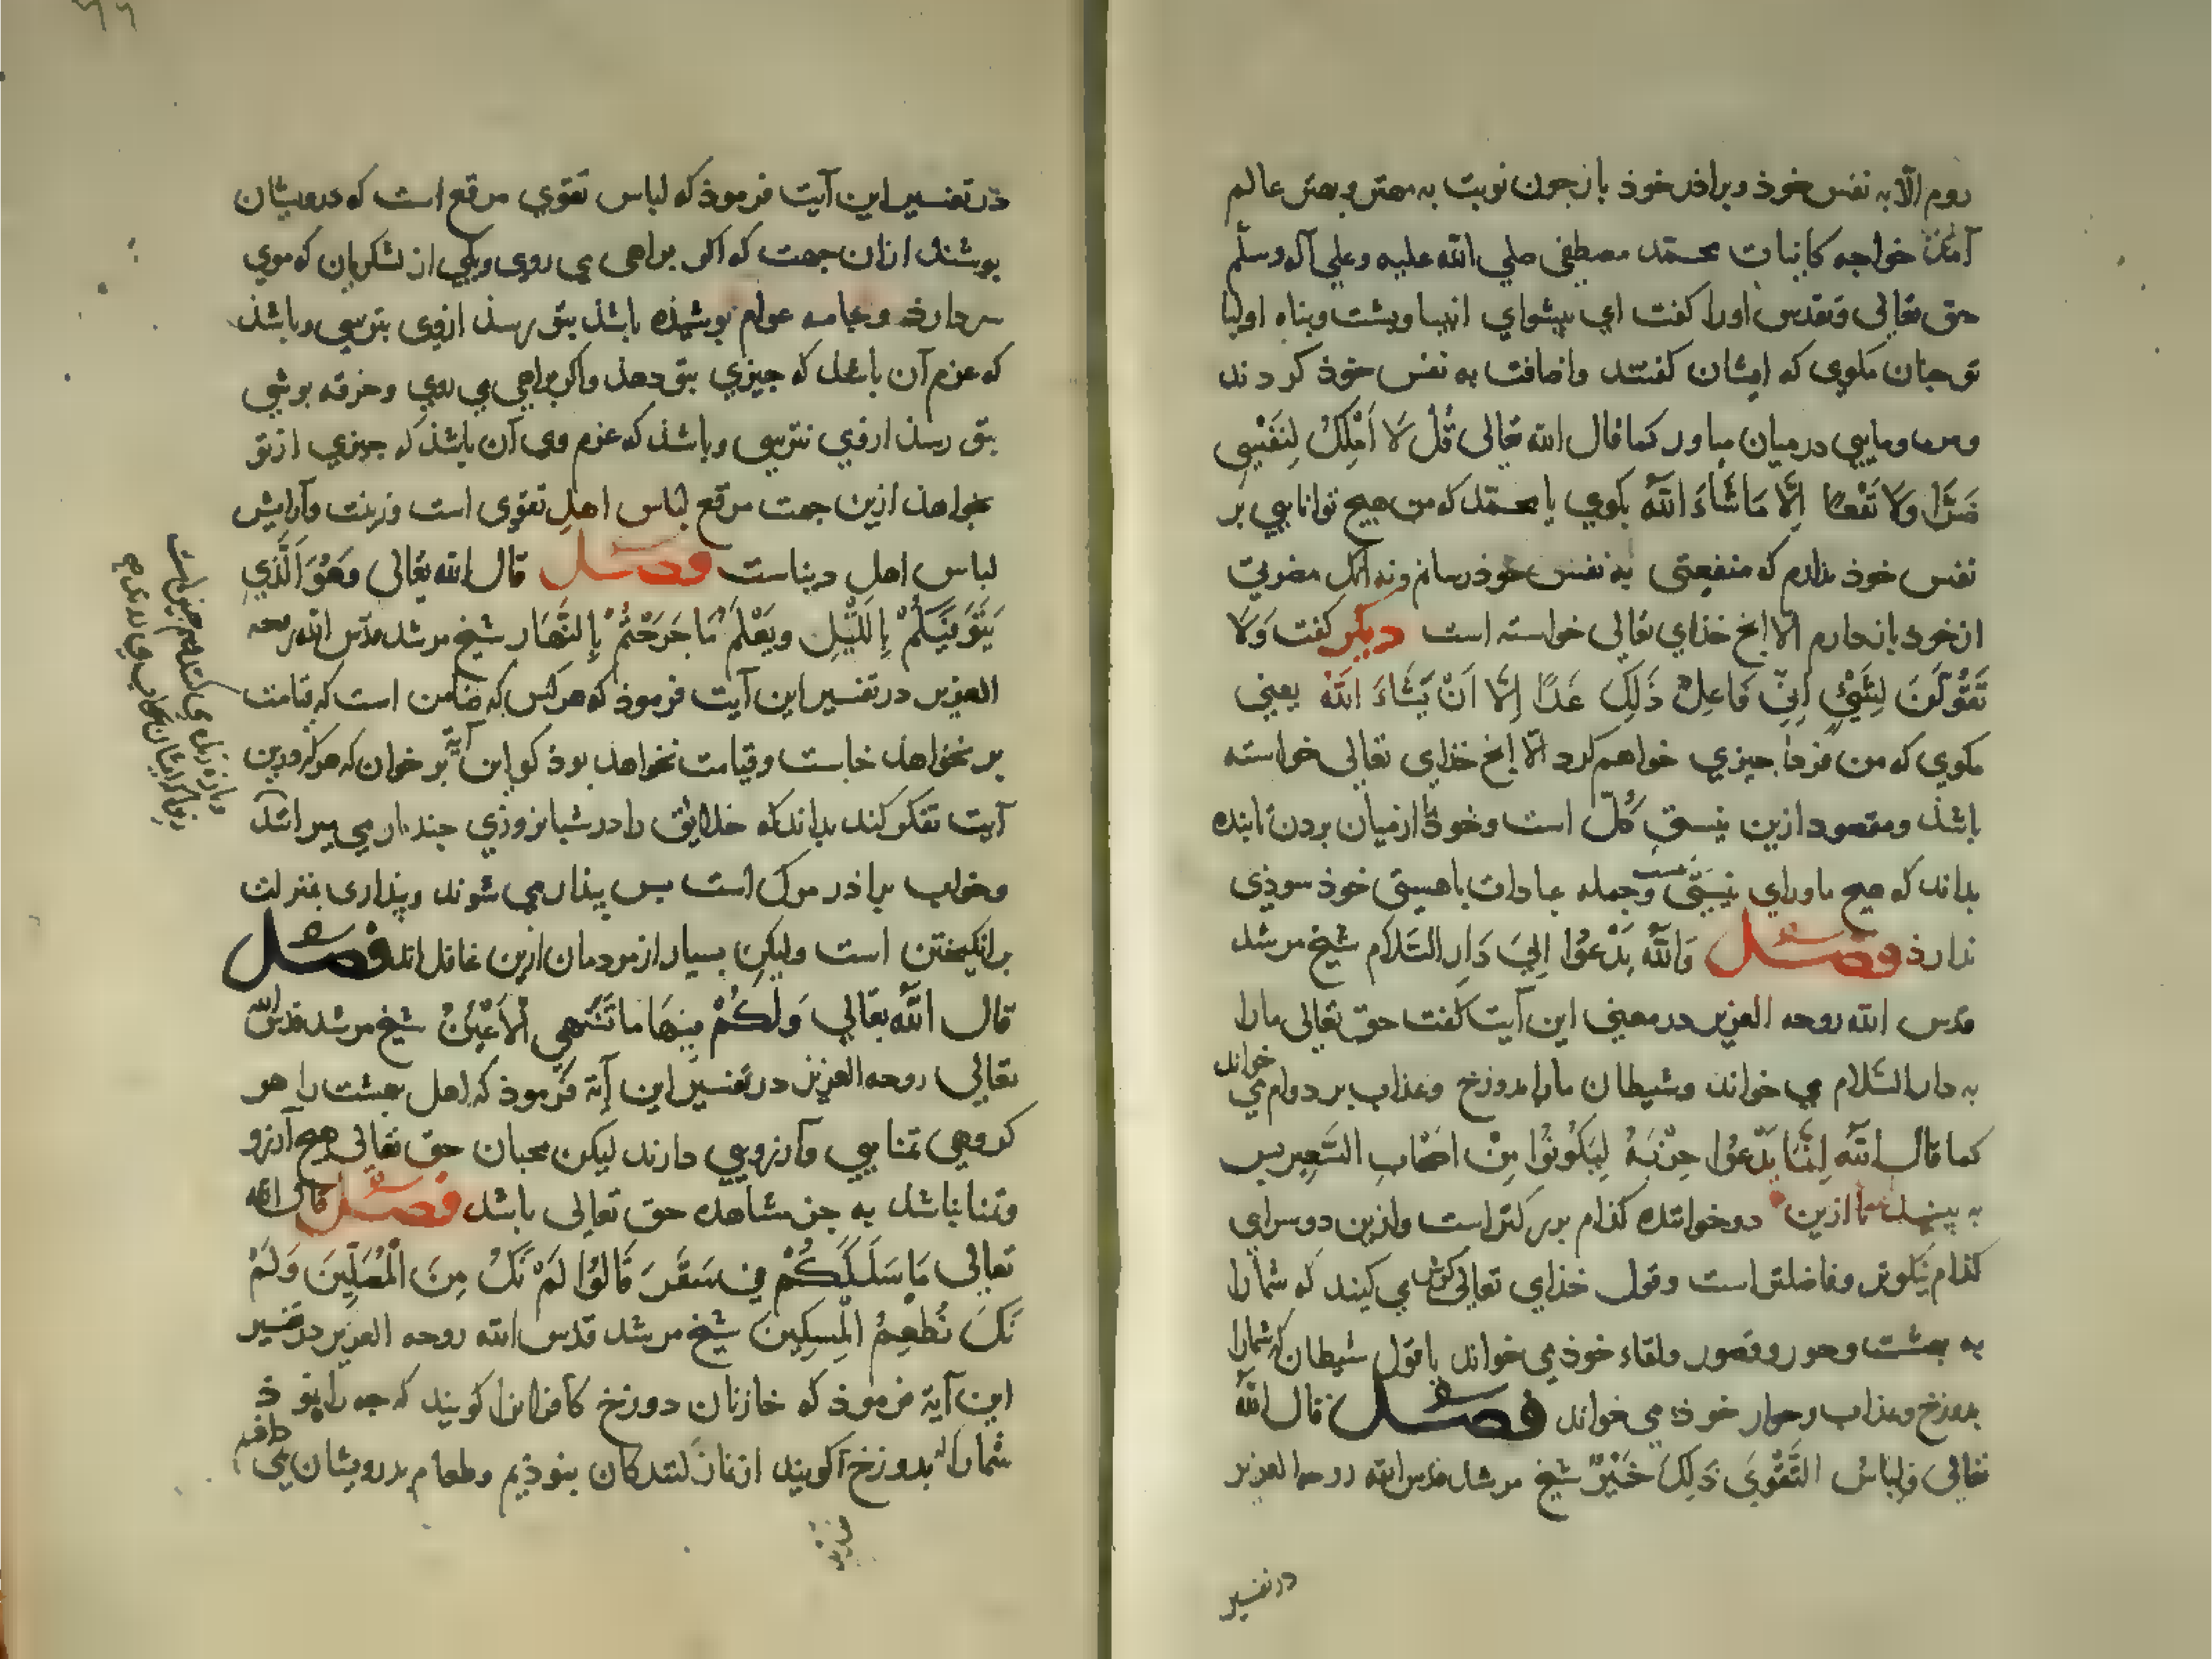 روم الّا به نفس خوذ و براذر خوذ باز جون نوبت به مهتر و بهتر عالم
آمذ خواجه کاینات محمّد مصطفی صلي الله علیه وعلي آله وسلّم
حق تعالی وتقدس اورا کفت اي بیشواي انبیا وبشت وبناه اولیا
تو جنان مکوي که ایشان کفتند واضافت به نفس خوذ کردند
ومن ومایي در میان میاور کما قال الله تعالی قُل لَا اَمْلِكُ لِنَفْسِي
ضَرًّا وَلَا نَفْعًا اِلَّا مَا شَاءَ اللّهُ بکوي یا محمّد که من هیج توانایي بر
نفس خوذ ندارم که منفعتی به نفس خوذ رسانم ونه انك مضرتی
از خود باز دارم الّا انج خذاي تعالی خواسته است دیکر کفت وَلَا
تَقُولَنَّ لِشَيْءٍ اِنِّي فَاعِلٌ ذَلِكَ غَدًا اِلَّا اَنْ یَشَاءَ اللّهُ یعني
مکوي که من فردا جیزي خواهم کرد الّا انج خذاي تعالی خواسته
باشذ ومقصود ازین نیستی کُلّ است وخوذ از میان بردن تا بنده
بداند که هیج ماوراي نیستی نیست وجمله عادات با هستی خوذ سوذی
نذارذ فصل وَاللّهُ یَدْعُوا اِلَي دَارِ السَّلَام شیخ مرشد
قدّس الله روحه العزیز در معني این آیت کفت حق تعالی مارا
به دار السَّلام مي خواند وشیطان مارا بدوزخ وعذاب بر دوام مي خواند
کما قال الله اِنَّمَا یَدْعُوا حِزْبَهُ لِیَكُونُوا مِنْ اَصْحَابِ السَّعِیرِ بس
به بینید شما ازین دو خواننده کذام بزرکتر است وازین دو سراي
کذام نیکوتر وفاضلتر است وقول خذاي تعالی کوش مي کنید که شمارا
به بهشت وحور وقصور ولقاء خوذ مي خواند یا قول شیطان که شمارا
بدوزخ وعذاب وجوار خوذ مي خواند فصل قال الله
تعالی ولِبَاسُ التَّقْوَي ذَلِكَ خَیْرٌ شیخ مرشد قدس الله روحه العزیز
در تفسیر
در تفسیر این آیت فرموذ که لباس تقوي مرقع است که درویشان
بوشند ازان جهت که اکر براهی مي روي ویکي از لشکریان که موي
سر دارذ وجامه عوام بوشیذه باشذ بتو رسذ ازوي بترسي وباشذ
که عزم آن باشد که جیزي بتو دهذ واکر براهي مي روي وخرقه بوشي
بتو رسذ ازوي نترسي وباشذ که عزم وي آن باشذ که جیزي از تو
بخواهذ ازین جهت مرقع لباس اهل تقوي است وزینت وآرایش
لباس اهل دنیاست فصل قال الله تعالی وَهُوَ الَّذِي
یَتَوَفَّیکُمْ بِاللَّیْلِ ویَعْلَمُ مَا جَرَحْتُمْ بِالنَّهَار شیخ مرشد قدّس الله روحه
العزیز در تفسیر این آیت فرموذ که هر کس که ضامن است که قیامت
بر نخواهذ خاست وقیامت نخواهذ بوذ کو این آیة بر خوان که هر که درین
آیت تفکر کند بداند که خلایق را در شبانروزي جند بار مي میرانند
وخواب براذر مرك است بس بیذار مي شوند وبیذاری بمنزلت
برانکیختن است ولیکن بسیار از مردمان ازین غافل اند فصل
قال اللّه تعالي وَلَکُمْ فِیهَا مَا تَشْتَهِي الْاَعْیُنُ شیخ مرشد قدّس الله
تعالي روحه العزیز در تفسیر این آیة فرموذ که اهل بهشت را هر
کروهي تمنایي وآرزویي دارند لیکن محبان حق تعالی هیج آرزو
وتمنا نباشد به جز مشاهده حق تعالی باشد فصل قال الله
تعالي مَا سَلَكَكُمْ فِي سَقَرَ قَالُوا لَمْ نَكُ مِنَ الْمُصَلِّینَ وَلَمْ
نَكُ نُطْعِمُ الْمِسكِینَ شیخ مرشد قدّس الله روحه العزیز در تفسیر
این آیة فرموذ که خازنان دوزخ کافرانرا کویند که جه بوذ
شمارا که بدوزخ کویند از نماز کنندکان نبوذیم وطعام بدرویشان نمي دادیم